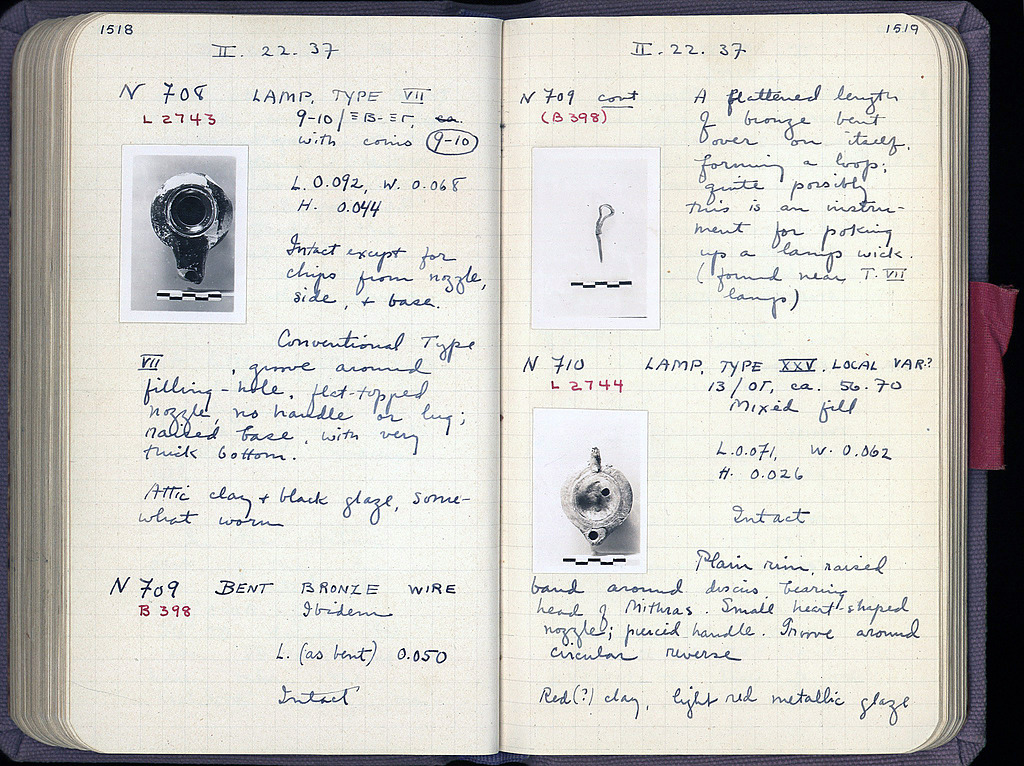 1518
II. 22. 37
N 708 LAMP, TYPE VII
L 2743
9-10/ΞΒ-ΞΓ, ca.
with coins 9-10
L. 0.092, W. 0.068
H. 0.044
Intact except for
chips from nozzle,
side, + base.
Conventional Type
VII, groove around
filling-hole, flat-topped
nozzle, no handle or lug;
raised base, with very
thick bottom.
Attic clay + black glaze, some-
what worn
N 709 BENT BRONZE WIRE
B 398 Ibidem
L. (as bent) 0.050
Intact
1519
II. 22. 37
N 709 cont
(B 398)
A flattened length
of bronze bent
over on itself,
forming a loop;
quite possibly
this is an instru-
ment for poking
up a lamp wick.
(found near T. VII
lamps)
N 710 LAMP, TYPE XXV, LOCAL VAR?
L 2744 13/ΟΓ, ca. 56.70
Mixed fill
L. 0.071, W. 0.062
H. 0.026
Intact
Plain rim, raised
band around discus bearing
head of Mithras. Small heart-shaped
nozzle; pierced handle. Groove around
circular reverse
Red(?) clay, light red metallic glaze